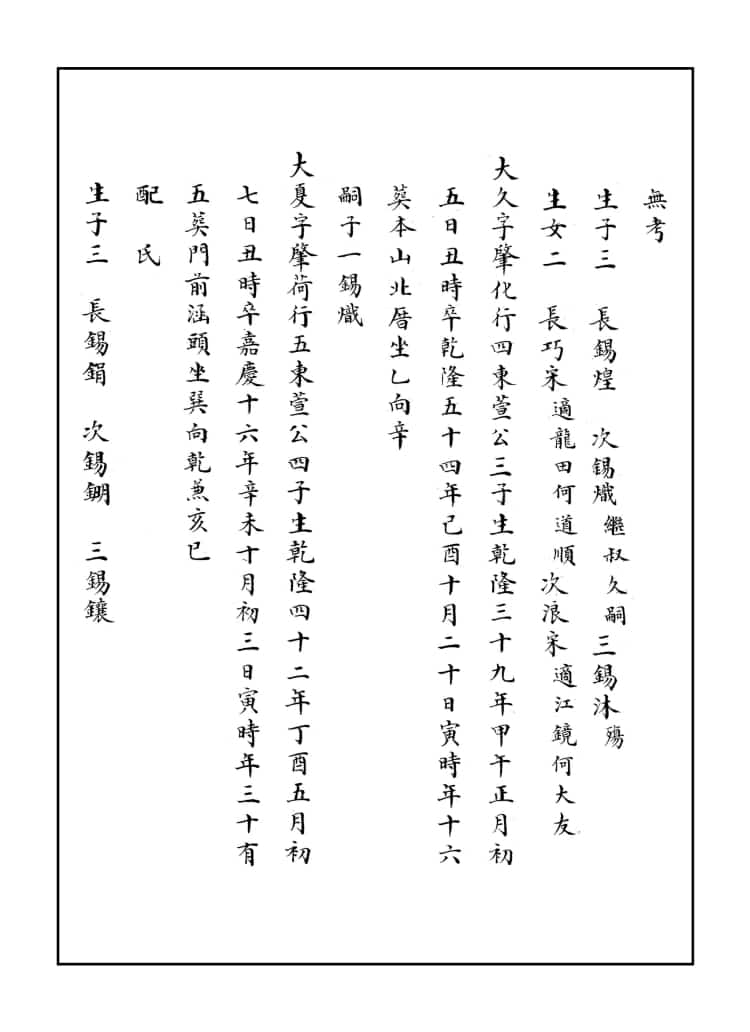 無考
生子三　長錫煌　次錫熾繼叔久嗣三錫沐殤
生女二　長巧宋適龍田何道順次浪宋適江鏡何大友
大久字肇化行四東萱公三子生乾隆三十九年甲午正月初
五日丑時卒乾隆五十四年己酉十月二十日寅時年十六
葬本山北厝坐乚向辛
嗣子一錫熾
大夏字肇荷行五東萱公四子生乾隆四十二年丁酉五月初
七日丑時卒嘉慶十六年辛未十月初三日寅時年三十有
五葬門前涵頭坐巽向乾兼亥巳
配　氏
生子三　長錫鋗　次錫鎙　三錫鑲